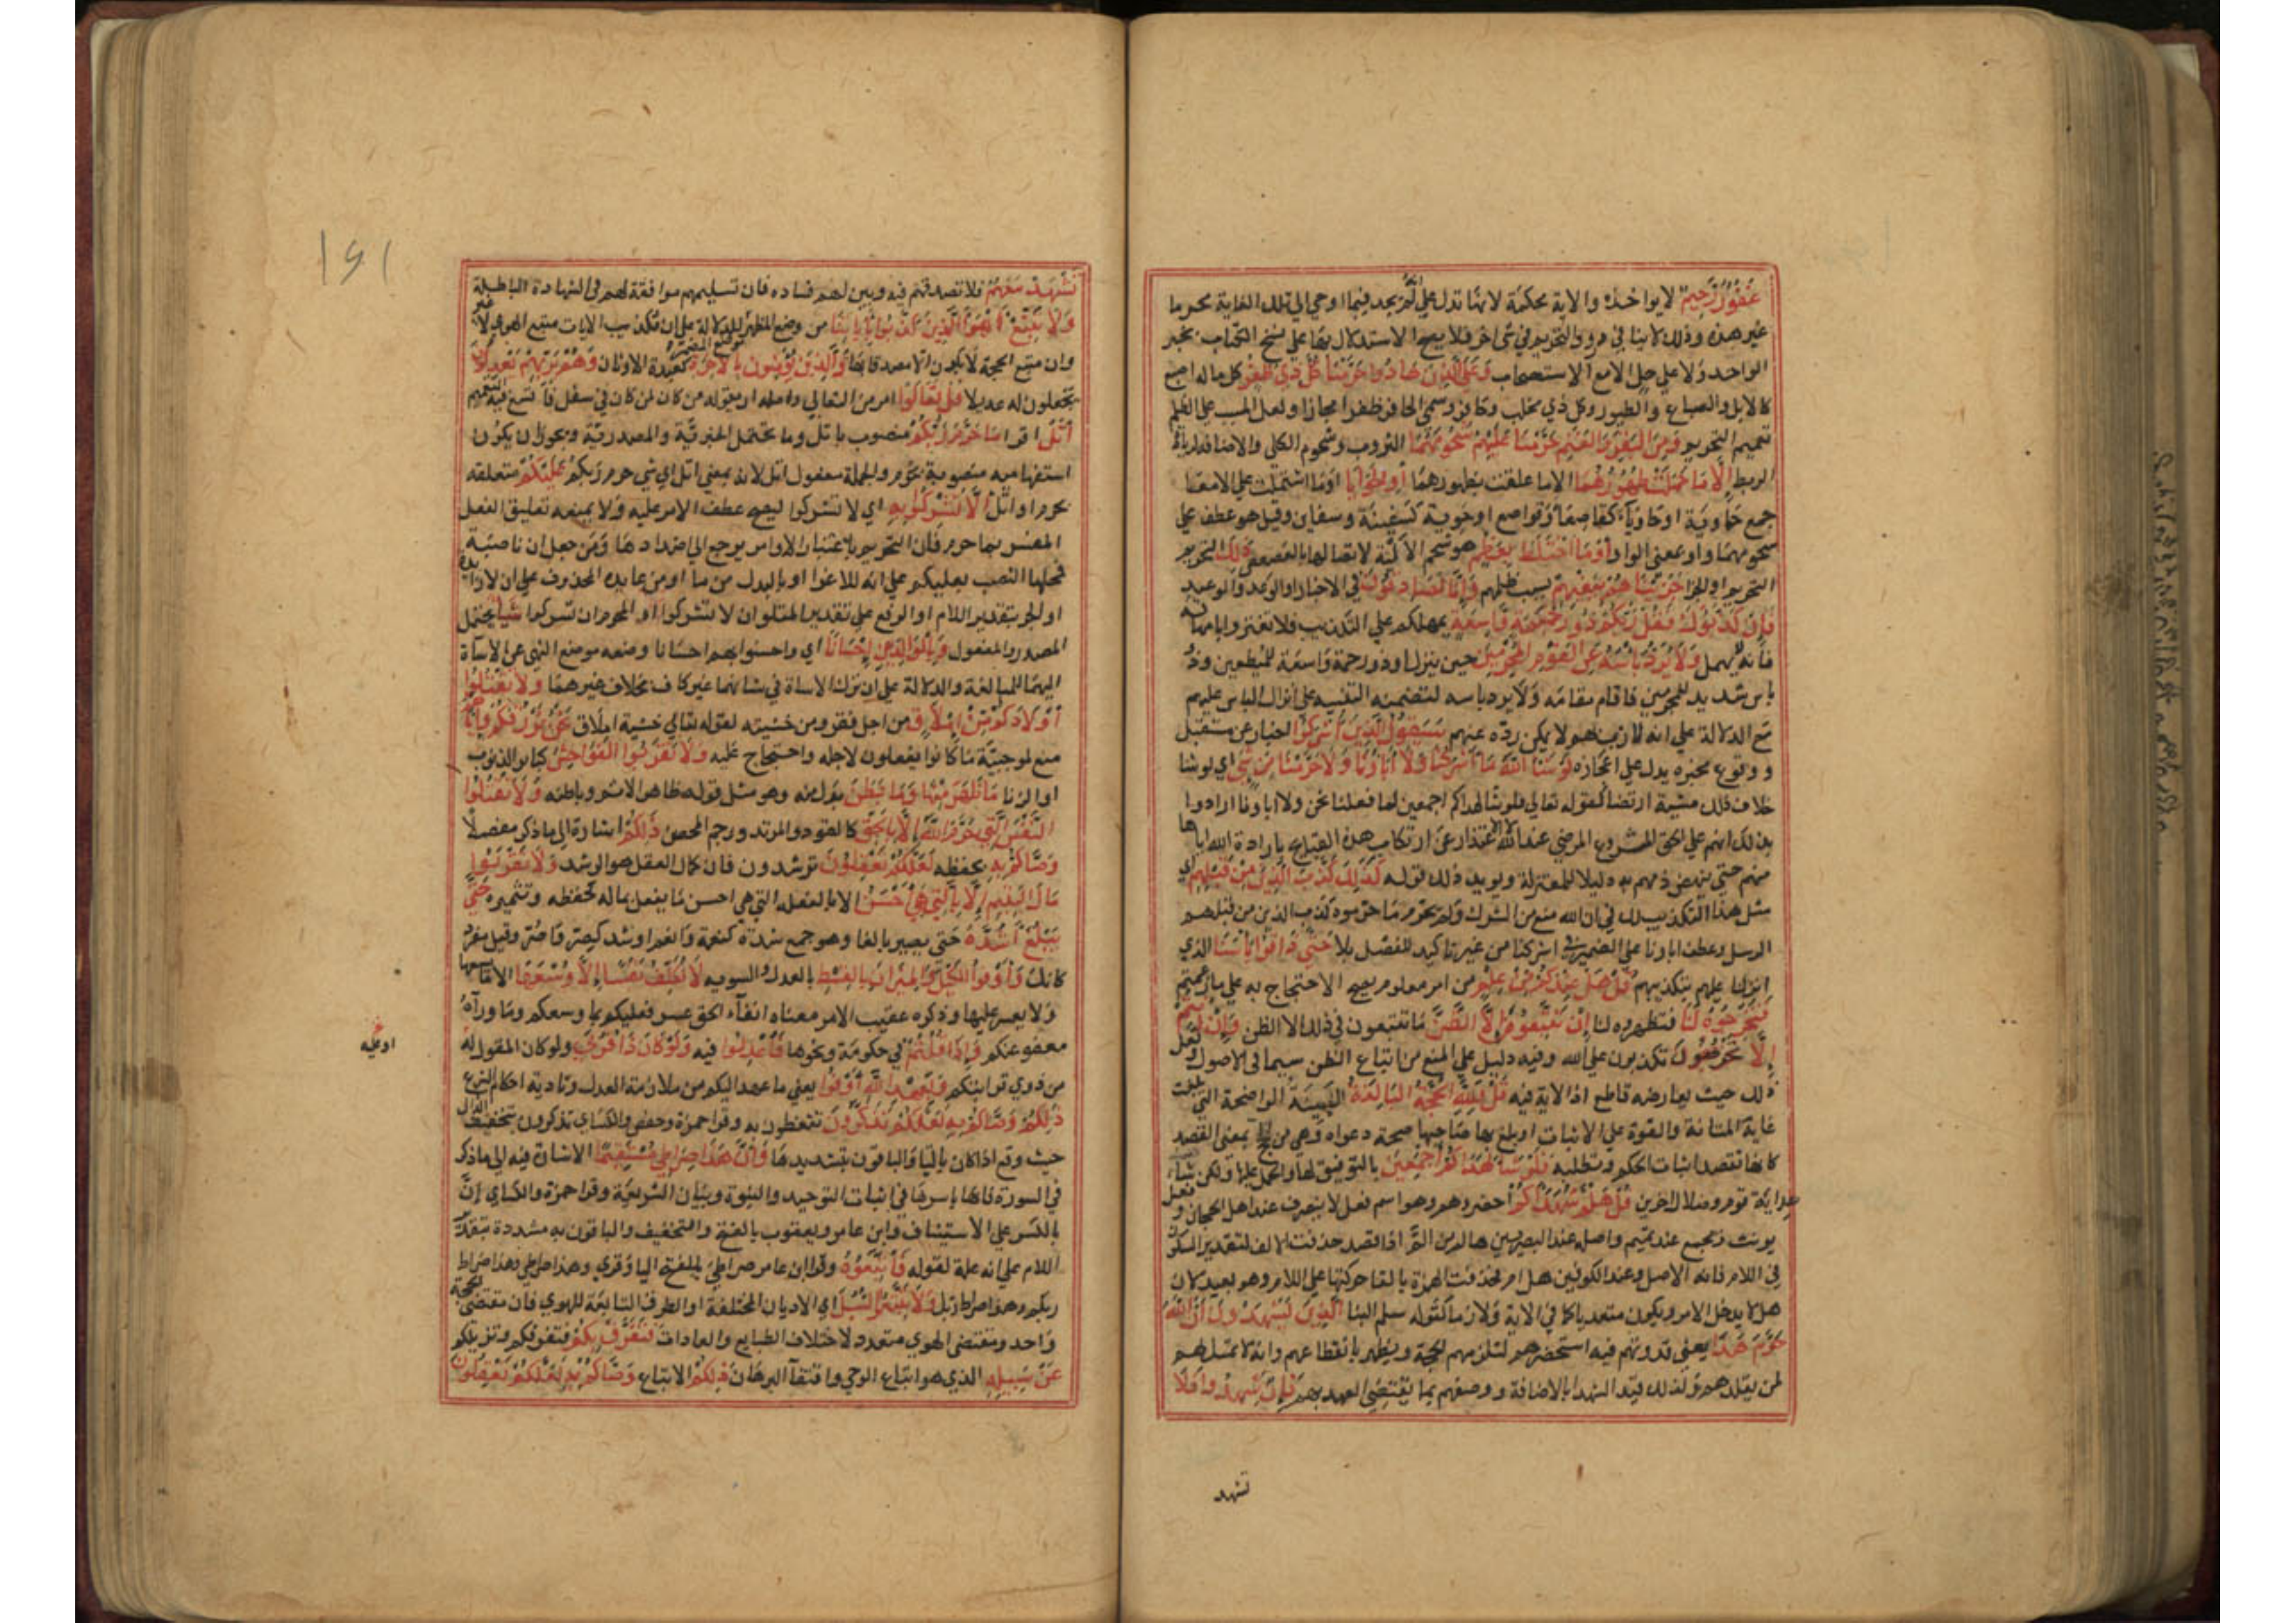 غَفُورٌ رَحِيمٌ لا يواخذه والاية محكمة لانها تدل على انه لم يجد فيما اوحي الي تلك الغاية محرما
غير هذه وذلك لا ينافي ورود التحريم في شي اخر فلا يصح الاستدلال بها على نسخ الكتاب بخبر
الواحد ولا على حل الامع الاستصحاب وَعَلَى الَّذِينَ هَادُوا حَرَّمْنَا كُلَّ ذِي ظُفُرٍ كل ماله اصبع
كالابل والسباع والطيور وكل ذي مخلب وحافر وسمى الحافر ظفرا مجازا ولعل المسبب على الظلم
تعميم التحريم وَمِنَ الْبَقَرِ وَالْغَنَمِ حَرَّمْنَا عَلَيْهِمْ شُحُومَهُمَا الثروب وشحوم الكلى والاضافة لزيادة
الربط إِلَّا مَا حَمَلَتْ ظُهُورُهُمَا الا ما علقت بظهورهما أَوِ الْحَوَايَا او ما اشتملت على الامعا
جمع حاوية او حاوياء كقاصعاء وقواصع او حوية كسفينة وسفاين وقيل هو عطف على
شحومهما واو بمعنى الواو أَوْ مَا اخْتَلَطَ بِعَظْمٍ هو شحم الالية لاتصالها بالعصعص ذَلِكَ التحريم
التحريم او الجزا جَزَيْنَاهُمْ بِبَغْيِهِمْ بسبب ظلمهم وَإِنَّا لَصَادِقُونَ في الاخبار او الوعد والوعيد
فَإِنْ كَذَّبُوكَ فَقُلْ رَبُّكُمْ ذُو رَحْمَةٍ وَاسِعَةٍ يمهلكم على التكذيب فلا تغتروا بامهاله
فانه لا يهمل وَلَا يُرَدُّ بَأْسُهُ عَنِ الْقَوْمِ الْمُجْرِمِينَ حين ينزل او ذو رحمة واسعة للمطيعين وذو
باس شديد للمجرمين فاقام مقامه ولا يرد باسه لتضمنه التنبيه على انزال الباس عليهم
مع الدلالة على انه لازب بهم لا يمكن رده عنهم سَيَقُولُ الَّذِينَ أَشْرَكُوا اخبار عن مستقبل
ووقوع مخبره يدل على اعجازه لَوْ شَاءَ اللَّهُ مَا أَشْرَكْنَا وَلَا آبَاؤُنَا وَلَا حَرَّمْنَا مِنْ شَيْءٍ اي لو شا
خلاف ذلك مشية ارتضا كقوله تعالى فلو شا لهداكم اجمعين لما فعلنا نحن ولا اباونا ارادوا
بذلك انهم على الحق المشروع المرضي عند الله لا الاعتذار عن ارتكاب هذه القبايح بارادة الله اياها
منهم حتى ينهض ذمهم به دليلا للمعتزلة ويويد ذلك قوله كَذَلِكَ كَذَّبَ الَّذِينَ مِنْ قَبْلِهِمْ اي
مثل هذا التكذيب لك في ان الله منع من الشرك ولم يحرم ما حرموه كذب الذين من قبلهم
الرسل وعطف اباونا على الضمير في اشركنا من غير تاكيد للفصل بلا حَتَّى ذَاقُوا بَأْسَنَا الذي
انزلنا عليهم بتكذيبهم قُلْ هَلْ عِنْدَكُمْ مِنْ عِلْمٍ من امر معلوم يصح الاحتجاج به على ما زعمتم
فَتُخْرِجُوهُ لَنَا فتظهروه لنا إِنْ تَتَّبِعُونَ إِلَّا الظَّنَّ ما تتبعون في ذلك الا الظن وَإِنْ أَنْتُمْ
إِلَّا تَخْرُصُونَ تكذبون على الله وفيه دليل على المنع من اتباع الظن سيما في الاصول ولعل
ذلك حيث يعارضه قاطع اذ الاية فيه قُلْ فَلِلَّهِ الْحُجَّةُ الْبَالِغَةُ البينة الواضحة التي بلغت
غاية المتانة والقوة على الاثبات او بلغ بها صاحبها صحة دعواه وهي من الحج بمعنى القصد
كانها تقصد اثبات الحكم وتطلبه فَلَوْ شَاءَ لَهَدَاكُمْ أَجْمَعِينَ بالتوفيق لها والحمل عليها ولكن شاء
هداية قوم وضلال اخرين قُلْ هَلُمَّ شُهَدَاءَكُمُ احضروهم وهو اسم فعل لا يتصرف عند اهل الحجاز وفعل
يونث ويجمع عند تميم واصله عند البصريين ها لم من لم اذا قصد حذفت الالف لتقدير السكون
في اللام فانه الاصل وعند الكوفيين هل ام فحذفت الهمزة بالقا حركتها على اللام وهو بعيد لان
هل لا يدخل الامر ويكون متعديا كما في الاية ولازما كقوله هلم الينا الَّذِينَ يَشْهَدُونَ أَنَّ اللَّهَ
حَرَّمَ هَذَا يعني قدوتهم فيه استحضرهم لتلزمهم الحجة ويظهر بانقطاعهم وانه لا متمسك لهم
لمن يقلدهم ولذلك قيد الشهدا بالاضافة ووصفهم بما يقتضي العهد بهم فَإِنْ شَهِدُوا فَلَا
تشهد
تَشْهَدْ مَعَهُمْ فلا تصدقهم فيه وبين لهم فساده فان تسليمهم موافقة لهم في الشهادة الباطلة
وَلَا تَتَّبِعْ أَهْوَاءَ الَّذِينَ كَذَّبُوا بِآيَاتِنَا من وضع المظهر موضع المضمر للدلالة على ان مكذب الايات متبع الهوى لا غير
وان متبع الحجة لا يكون الا مصدقا بها وَالَّذِينَ لَا يُؤْمِنُونَ بِالْآخِرَةِ كعبدة الاوثان وَهُمْ بِرَبِّهِمْ يَعْدِلُونَ
يجعلون له عديلا قُلْ تَعَالَوْا امر من التعالي واصله ان يقوله من كان في علو لمن كان في سفل فاتسع فيه بالتعميم
أَتْلُ اقرا مَا حَرَّمَ رَبُّكُمْ منصوب باتل وما يحتمل الخبرية والمصدرية ويجوز ان يكون
استفهامية منصوبة بحرم والجملة مفعول اتل لانه بمعنى اتل اي شي حرم ربكم عَلَيْكُمْ متعلقة
بحرم او اتل أَلَّا تُشْرِكُوا بِهِ اي لا تشركوا ليصح عطف الامر عليه ولا يمنعه تعليق الفعل
المفسر بما حرم فان التحريم باعتبار الاوامر يرجع الى اضدادها ومن جعل ان ناصبة
فمحلها النصب بعليكم على انه للاغرا او بالبدل من ما او من عايده المحذوف على ان لا زايدة
او الجر بتقدير اللام او الرفع على تقدير المتلو ان لا تشركوا او المحرم ان تشركوا شَيْئًا يحتمل
المصدر والمفعول وَبِالْوَالِدَيْنِ إِحْسَانًا اي واحسنوا بهما احسانا وضعه موضع النهي عن الاساة
اليهما للمبالغة والدلالة على ان ترك الاساة في شانهما غير كاف بخلاف غيرهما وَلَا تَقْتُلُوا
أَوْلَادَكُمْ مِنْ إِمْلَاقٍ من اجل فقر ومن خشيته لقوله تعالى خشية املاق نَحْنُ نَرْزُقُكُمْ وَإِيَّاهُمْ
منع لموجبية ما كانوا يفعلون لاجله واحتجاج عليه وَلَا تَقْرَبُوا الْفَوَاحِشَ كباير الذنوب
او الزنا مَا ظَهَرَ مِنْهَا وَمَا بَطَنَ بدل منه وهو مثل قوله ظاهر الاثم وباطنه وَلَا تَقْتُلُوا
النَّفْسَ الَّتِي حَرَّمَ اللَّهُ إِلَّا بِالْحَقِّ كالقود والمرتد ورجم المحصن ذَلِكُمْ اشارة الى ما ذكر مفصلا
وَصَّاكُمْ بِهِ بحفظه لَعَلَّكُمْ تَعْقِلُونَ ترشدون فان كمال العقل هو الرشد وَلَا تَقْرَبُوا
مَالَ الْيَتِيمِ إِلَّا بِالَّتِي هِيَ أَحْسَنُ الا بالفعله التي هي احسن ما يفعل بماله كحفظه وتثميره حَتَّى
يَبْلُغَ أَشُدَّهُ حتى يصير بالغا وهو جمع شدة كنعمة وانعم او شد كصر واصر وقيل مفرد
كانك وَأَوْفُوا الْكَيْلَ وَالْمِيزَانَ بِالْقِسْطِ بالعدل والسويه لَا نُكَلِّفُ نَفْسًا إِلَّا وُسْعَهَا الا ما يسعها
ولا يعسر عليها وذكره عقيب الامر معناه ايفاء الحق عسر فعليكم بما وسعكم وما وراه
معفو عنكم وَإِذَا قُلْتُمْ في حكومة ونحوها فَاعْدِلُوا فيه وَلَوْ كَانَ ذَا قُرْبَى ولو كان المقول له
او عليه
من ذوي قرابتكم وَبِعَهْدِ اللَّهِ أَوْفُوا يعني ما عهد اليكم من ملازمة العدل وتادية احكام الشرع
ذَلِكُمْ وَصَّاكُمْ بِهِ لَعَلَّكُمْ تَذَكَّرُونَ تتعظون به وقرا حمزة وحفص والكساي تذكرون بتخفيف الذال
حيث وقع اذا كان بالتا والباقون بتشديدها وَأَنَّ هَذَا صِرَاطِي مُسْتَقِيمًا الاشارة فيه الى ما ذكر
في السورة فانها باسرها في اثبات التوحيد والنبوة وبيان الشريعة وقرا حمزة والكساي إِنَّ
بالكسر على الاستيناف وابن عامر ويعقوب بالفتح والتخفيف والباقون به مشددة بتقدير
اللام على انه علة لقوله فَاتَّبِعُوهُ وقرا ابن عامر صراطي بفتح اليا وقري وهذا صراطي وهذا صراط
ربكم وهذا صراط ربك وَلَا تَتَّبِعُوا السُّبُلَ اي الاديان المختلفة او الطرق التابعة للهوى فان مقتضى الحجة
واحد ومقتضى الهوى متعدد لاختلاف الطبايع والعادات فَتَفَرَّقَ بِكُمْ فتفرقكم وتزيلكم
عَنْ سَبِيلِهِ الذي هو اتباع الوحي واقتفا البرهان ذَلِكُمْ الاتباع وَصَّاكُمْ بِهِ لَعَلَّكُمْ تَعْقِلُونَ